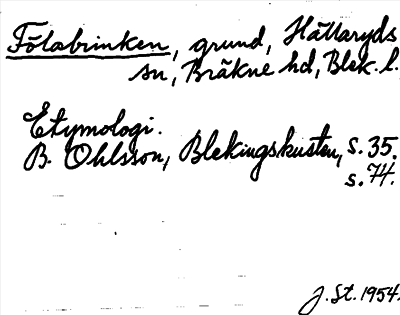 Fölabrinken, grund, Hällaryds
sn, Bräkne hd, Blek. l.
Etymologi.
B. Ohlsson, Blekingskusten, s. 35.
s. 74.
J. St. 1954.